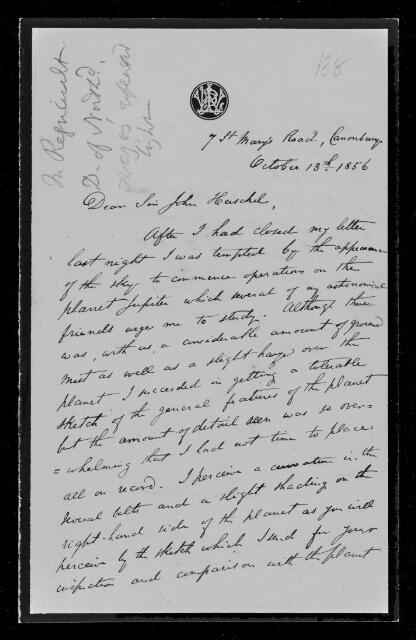 138
Mr Regnault
Dn of
light
7 St Mary's Road, Canonbury
October 13th 1856
Dear Sir John Herschel,
After I had closed my letter
last night I was tempted by the appearance
of the sky to commence operations on the
planet Jupiter which several of my astronomical
friends urge me to study. Although there
was, with us, a considerable amount of ground
mist as well as a slight haze over the
planet I succeeded in getting a tolerable
sketch of the general features of the planet
but the amount of detail seen was so over=
=whelming that I had not time to place
all on record. I perceive a curvature in the
several belts and a slight shading on the
right-hand side of the planet as you will
perceive by the sketch which I send for your
inspection and comparison with the planet